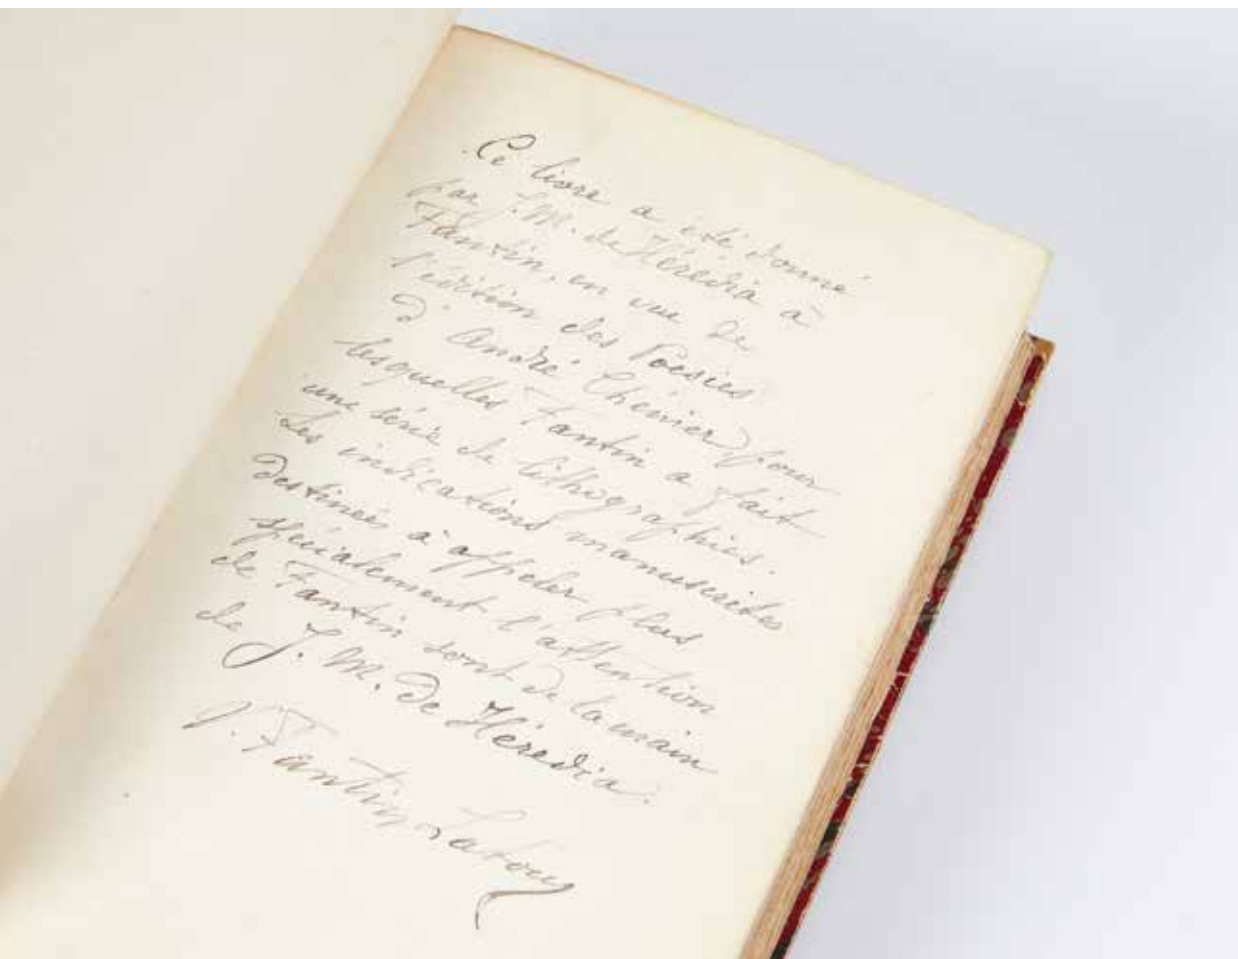 Ce livre a été donné
par J. M. de Hérédia à
Fantin, en vue de
l'édition des Poésies
d'André Chénier pour
lesquelles Fantin a fait
une série de lithographies.
Les indications manuscrites
destinées à appeler plus
spécialement l'attention
de Fantin sont de la main
de J. M. de Hérédia.
V. Fantin-Latour